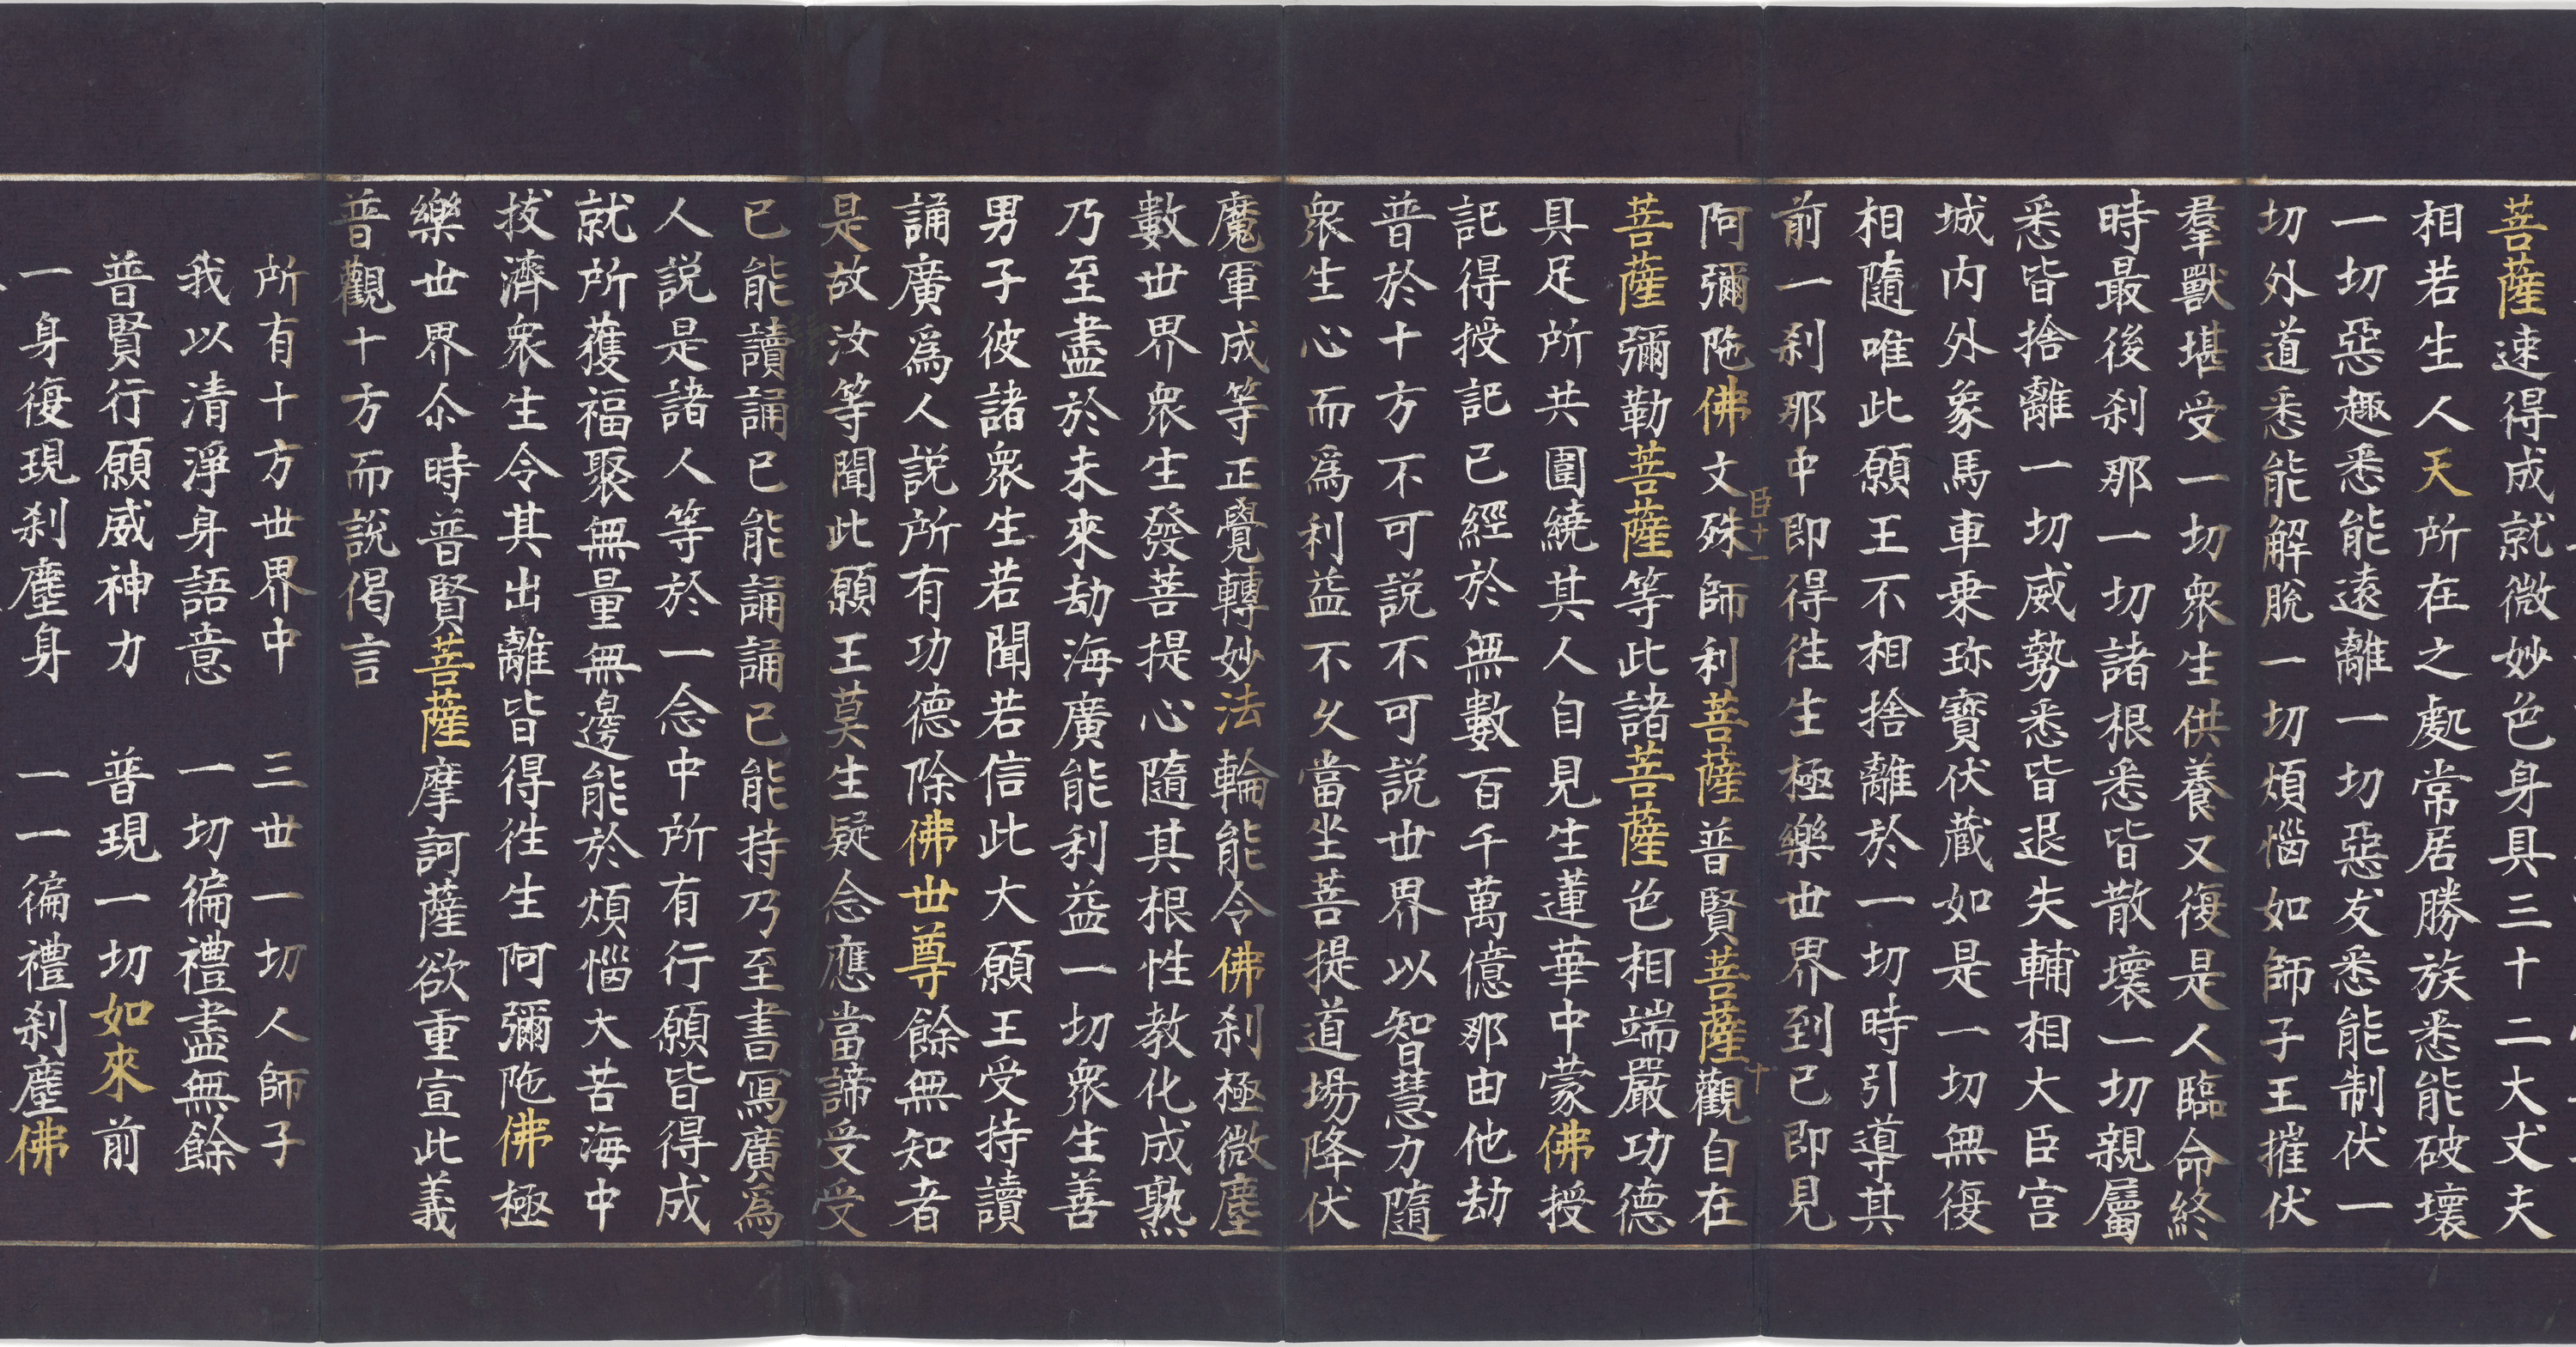 菩薩速得成就微妙色身具三十二大丈夫
相若生人天所在之處常居勝族悉能破壞
一切惡趣悉能遠離一切惡友悉能制伏一
切外道悉能解脫一切煩惱如師子王摧伏
羣獸堪受一切衆生供養又復是人臨命終
時最後刹那一切諸根悉皆散壞一切親屬
悉皆捨離一切威勢悉皆退失輔相大臣宮
城內外象馬車乗珎寶伏藏如是一切無復
相隨唯此願王不相捨離於一切時引導其
前一刹那中即得徃生極樂世界到已即見
臣十一
十
阿彌陁佛文殊師利菩薩普賢菩薩觀自在
菩薩彌勒菩薩等此諸菩薩色相端嚴功德
具足所共圍繞其人自見生蓮華中蒙佛授
記得授記已經於無數百千萬億那由他劫
普於十方不可說不可說世界以智慧力隨
衆生心而爲利益不久當坐菩提道場降伏
魔軍成等正覺轉妙法輪能令佛刹極微塵
數世界衆生發菩提心隨其根性教化成熟
乃至盡於未來劫海廣能利益一切衆生善
男子彼諸衆生若聞若信此大願王受持讀
誦廣爲人説所有功德除佛世尊餘無知者
是故汝等聞此願王莫生疑念應當諦受受
已能讀誦已能誦誦已能持乃至書寫廣爲
人説是諸人等於一念中所有行願皆得成
就所獲福聚無量無邊能於煩惱大苦海中
拔濟衆生令其出離皆得徃生阿彌陁佛極
樂世界尒時普賢菩薩摩訶薩欲重宣此義
普觀十方而説偈言
所有十方世界中　三世一切人師子
我以清淨身語意　一切徧禮盡無餘
普賢行願威神力　普現一切如來前
一身復現刹塵身　一一徧禮刹塵佛